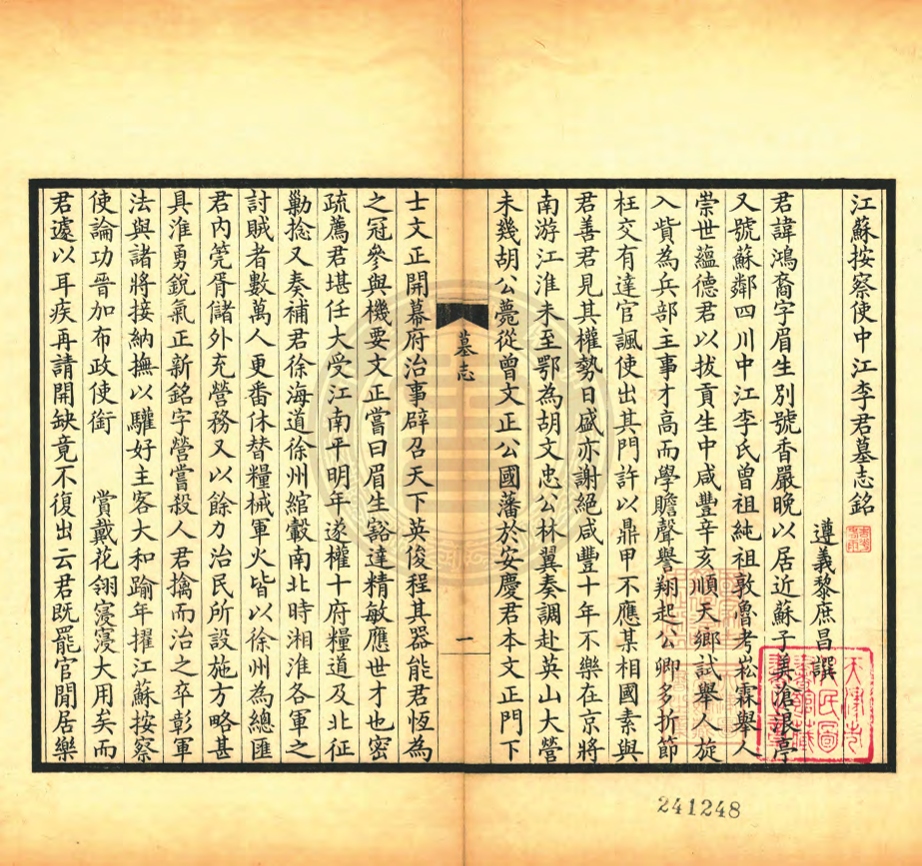 江蘇按察使中江李君墓志銘
遵義黎庶昌譔
君諱鴻裔字眉生別號香嚴晚以居近蘇子美滄浪亭
又號蘇鄰四川中江李氏曾祖純祖敦魯考崧霖舉人
崇世蘊德君以拔貢生中咸豐辛亥順天鄉試舉人旋
入貲為兵部主事才高而學贍聲譽翔起公卿多折節
枉交有達官諷使出其門許以鼎甲不應某相國素與
君善君見其權勢日盛亦謝絕咸豐十年不樂在京將
南游江淮未至鄂為胡文忠公林翼奏調赴英山大營
未幾胡公薨從曾文正公國藩於安慶君本文正門下
墓志
一
士文正開幕府治事辟召天下英俊程其器能君恆為
之冠參與機要文正嘗曰眉生豁達精敏應世才也密
疏薦君堪任大受江南平明年遂權十府糧道及北征
勦捻又奏補君徐海道徐州綰轂南北時湘淮各軍之
討賊者數萬人更番休替糧械軍火皆以徐州為總匯
君內筦胥儲外充營務又以餘力治民所設施方略甚
具淮勇銳氣正新銘字營嘗殺人君擒而治之卒彰軍
法與諸將接納撫以驩好主客大和踰年擢江蘇按察
使論功晉加布政使銜　賞戴花翎寖寖大用矣而
君遽以耳疾再請開缺竟不復出云君既罷官閒居樂
天津市人民圖書館藏書章
241248